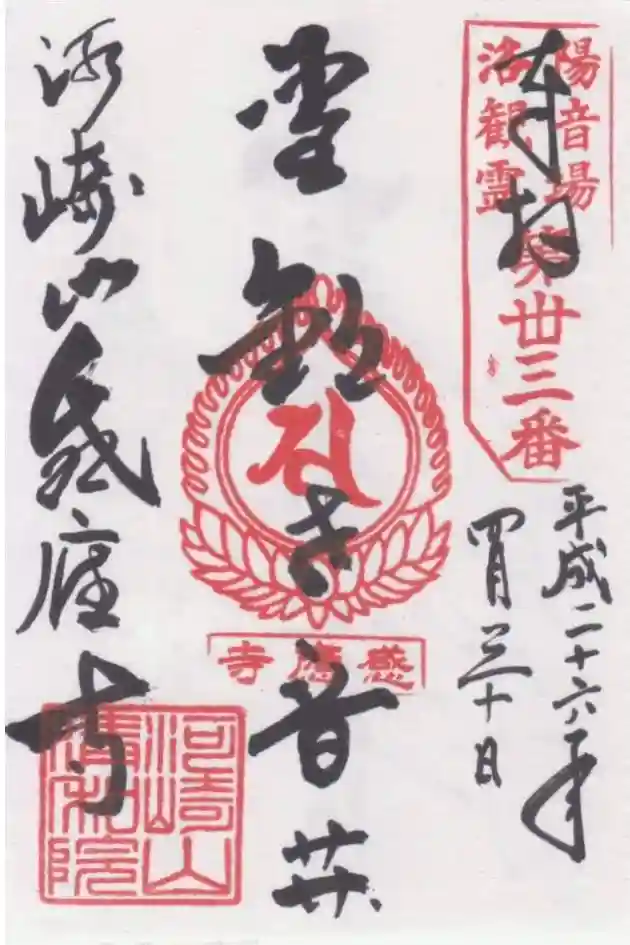 奉拝
洛陽観音霊場
第丗三番
平成二十六年
四月三十日
聖観世音𦬇
感應寺
河崎山感應寺
河崎山清和院